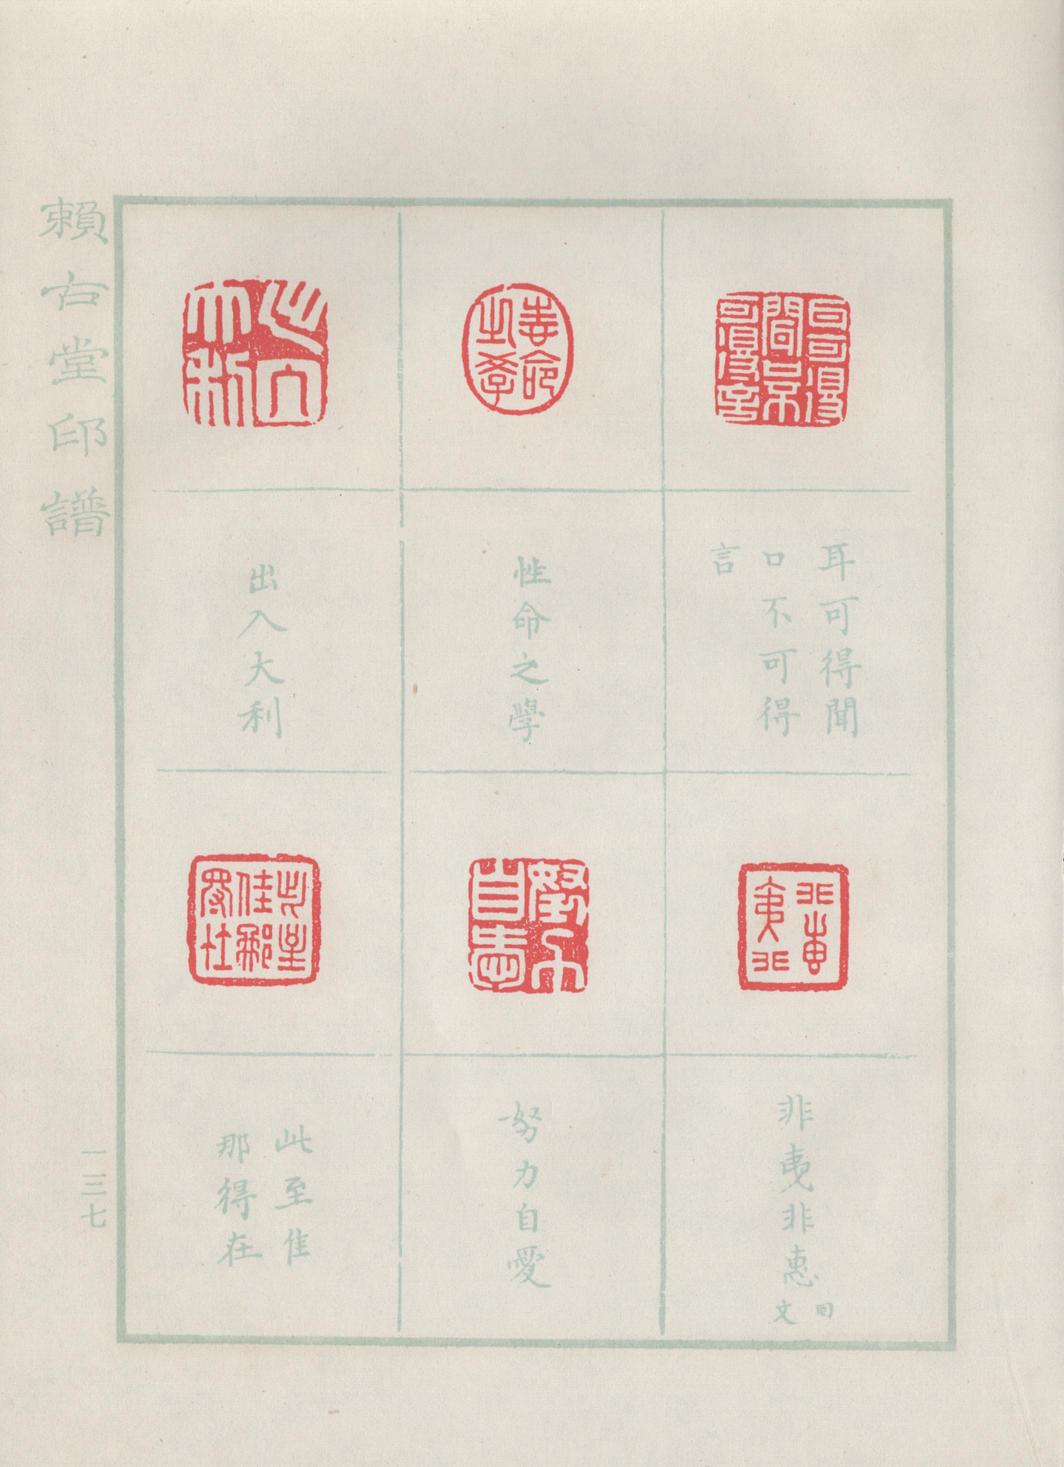 賴古堂印譜
耳可得聞
口不可得
言
性命之學
出入大利
非夷非惠
回
文
努力自愛
此至佳
那得在
一三七